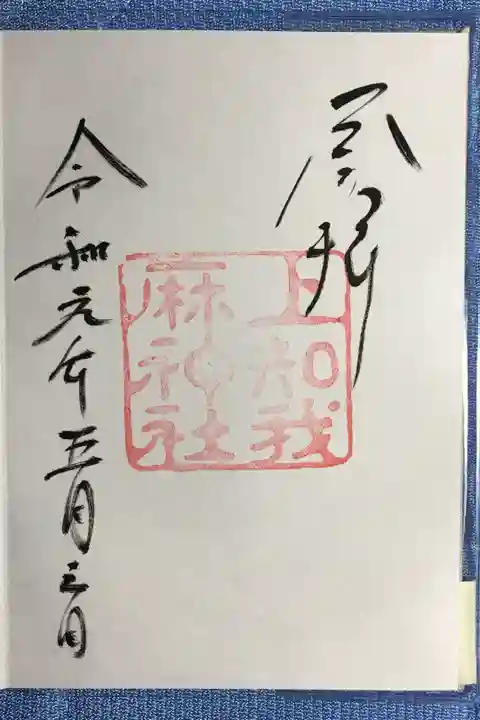 奉拝
上知我
麻神社
令和元年五月三日